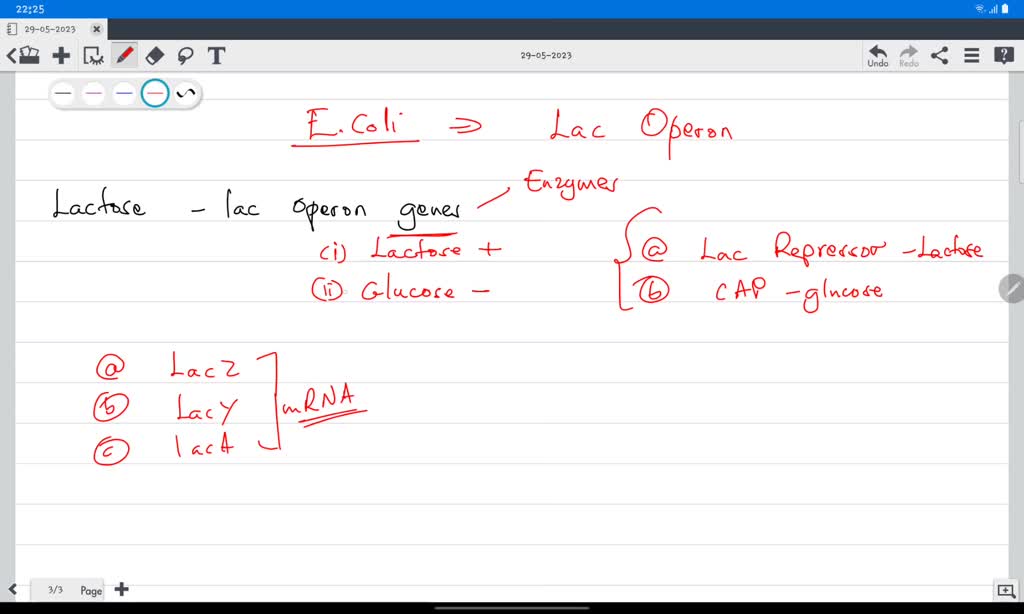 22:25
29-05-2023
T
29-05-2023
Undo
Redo
E.Coli ⇒ Lac Operon
Enzymes
Lactose - lac operon genes
(i) Lactose +
(ii) Glucose -
ⓐ Lac Repressor - Lactose
ⓑ CAP - glucose
ⓐ LacZ
ⓑ LacY
ⓒ lacA
mRNA
3/3 Page